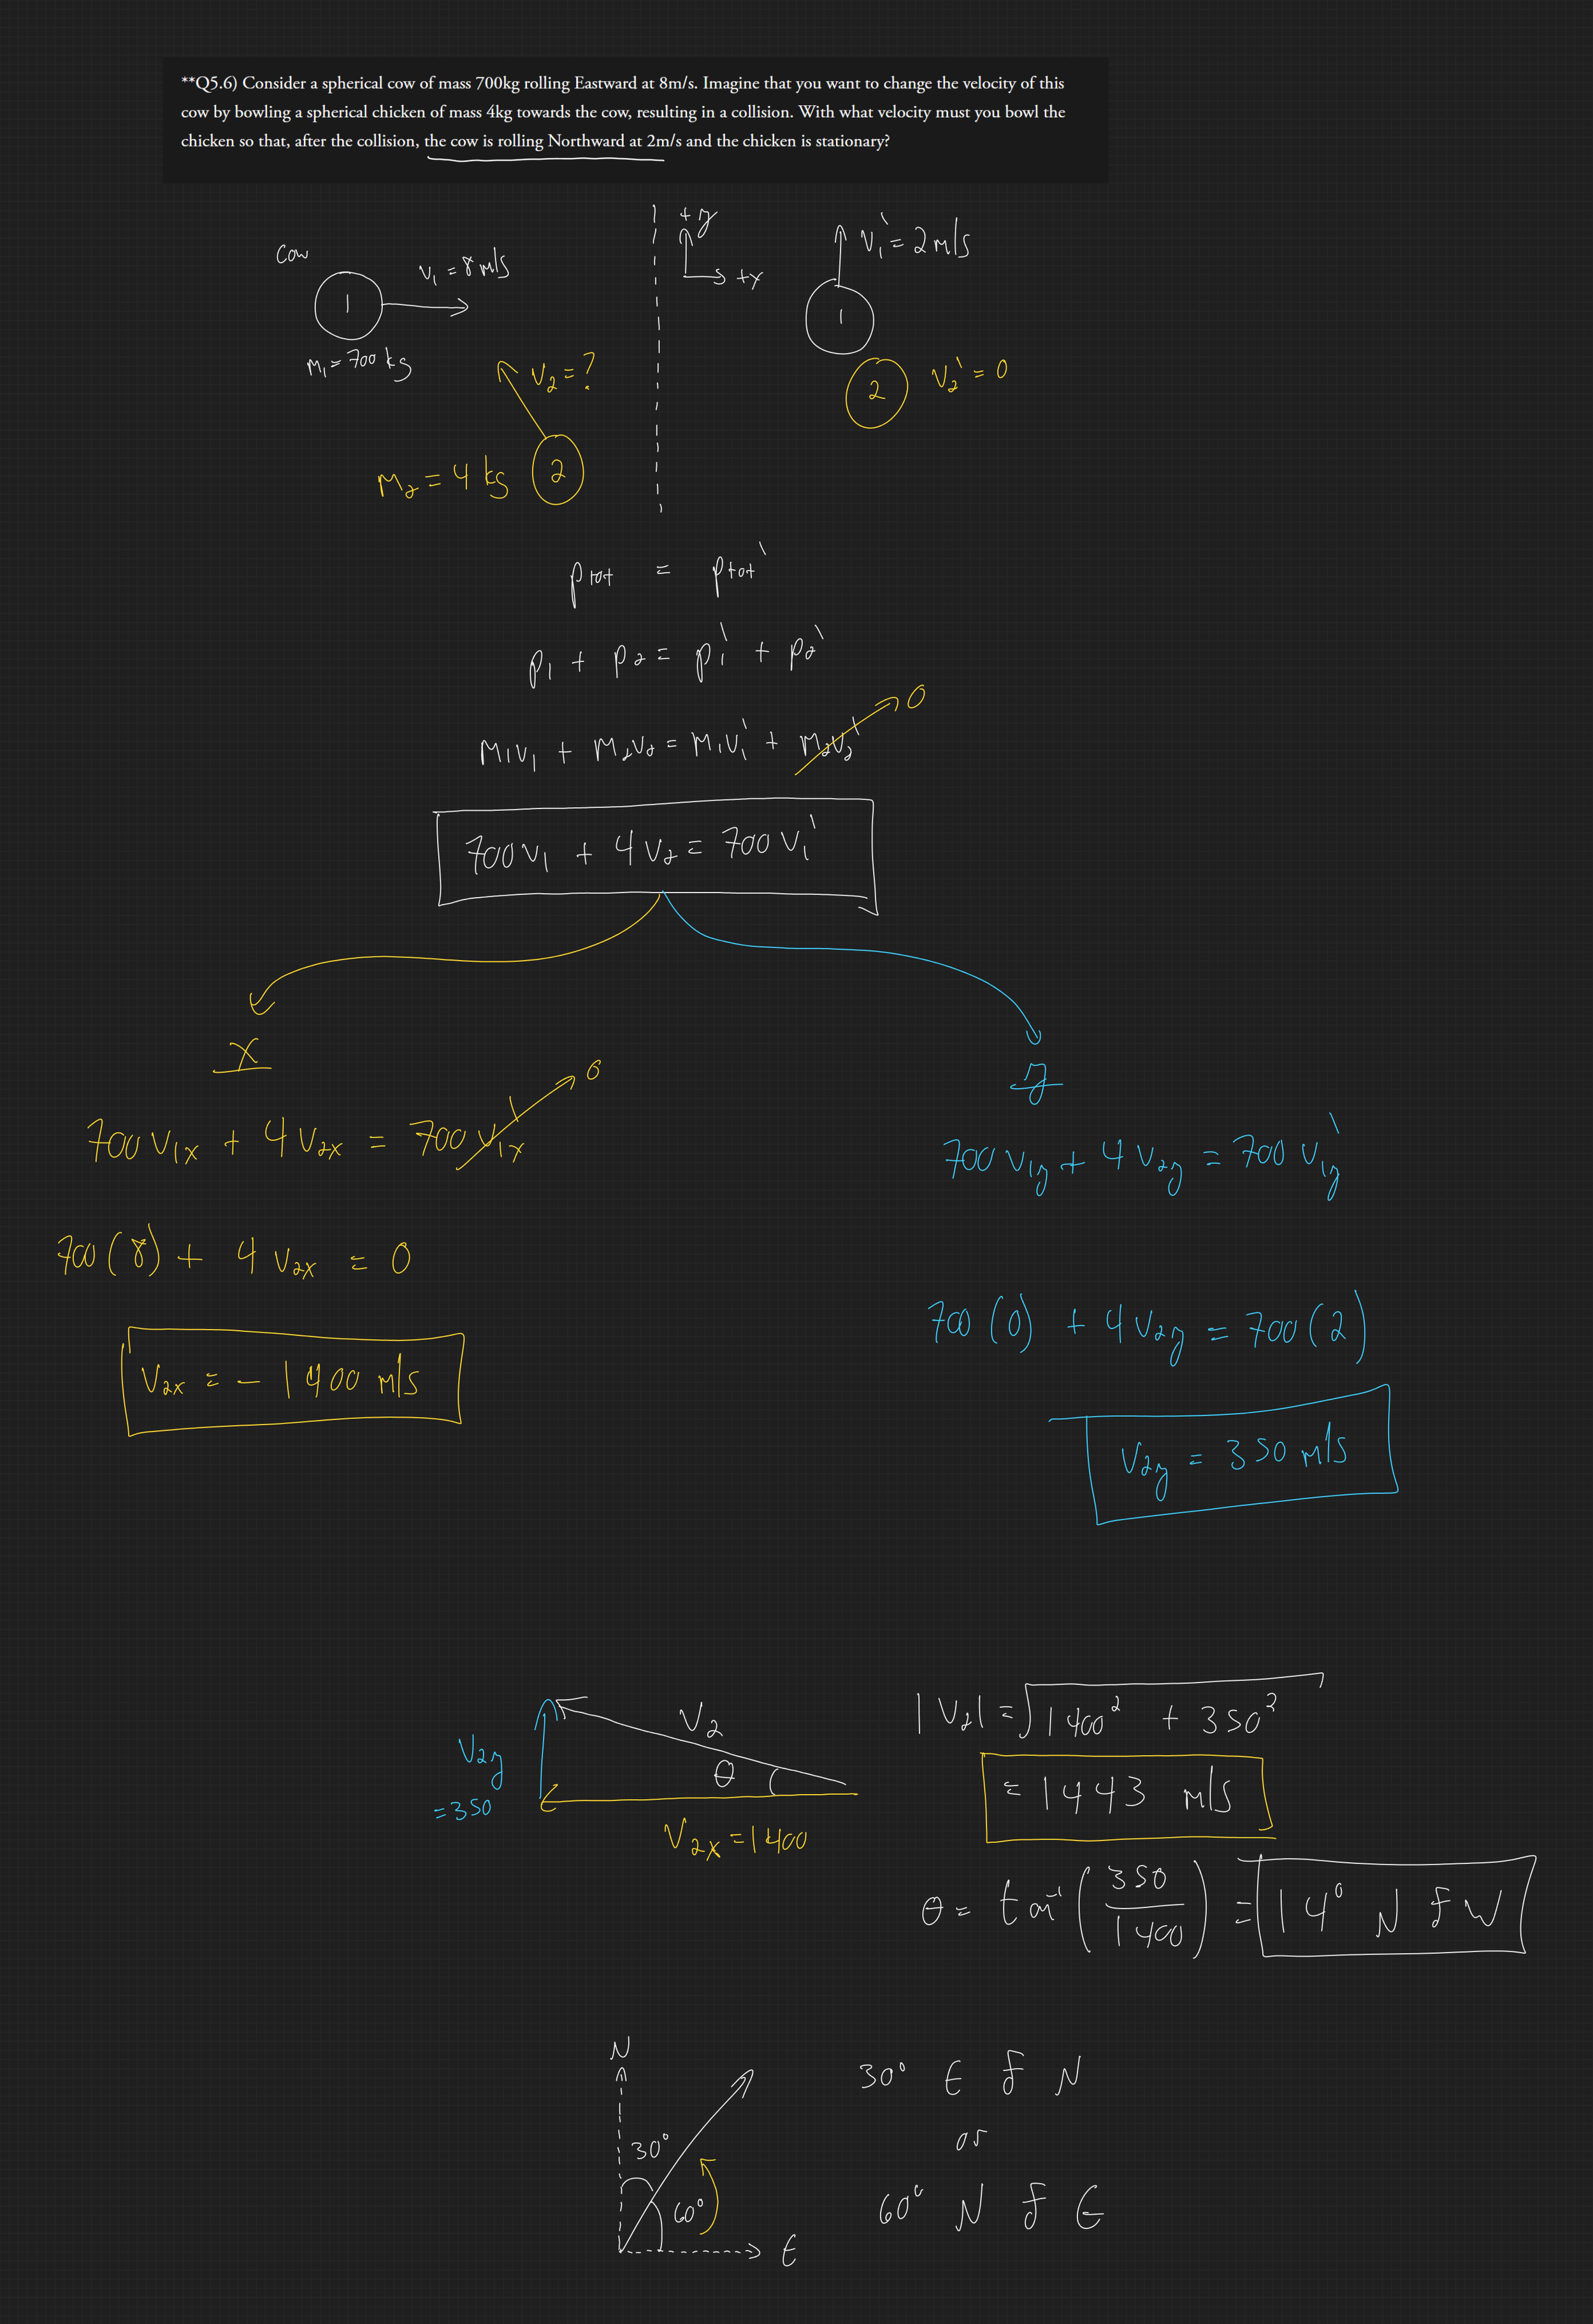 **Q5.6) Consider a spherical cow of mass 700kg rolling Eastward at 8m/s. Imagine that you want to change the velocity of this
cow by bowling a spherical chicken of mass 4kg towards the cow, resulting in a collision. With what velocity must you bowl the
chicken so that, after the collision, the cow is rolling Northward at 2m/s and the chicken is stationary?
Cow
1
v₁ = 8 m/s
m₁ = 700 kg
v₂ = ?
m₂ = 4 kg
2
+y
+x
v₁' = 2 m/s
1
2
v₂' = 0
ptot = ptot'
p₁ + p₂ = p₁' + p₂'
m₁v₁ + m₂v₂ = m₁v₁' + m₂v₂' 0
700 v₁ + 4 v₂ = 700 v₁'
x
700 v₁x + 4 v₂x = 700 v₁x' 0
700 (8) + 4 v₂x = 0
v₂x = - 1400 m/s
y
700 v₁y + 4 v₂y = 700 v₁y'
700 (0) + 4 v₂y = 700 (2)
v₂y = 350 m/s
v₂y
= 350
v₂
θ
v₂x = 1400
|v₂| = √1400² + 350²
= 1443 m/s
θ = tan⁻¹ (350/1400) = 14° N of W
N
30°
60°
E
30° E of N
or
60° N of E